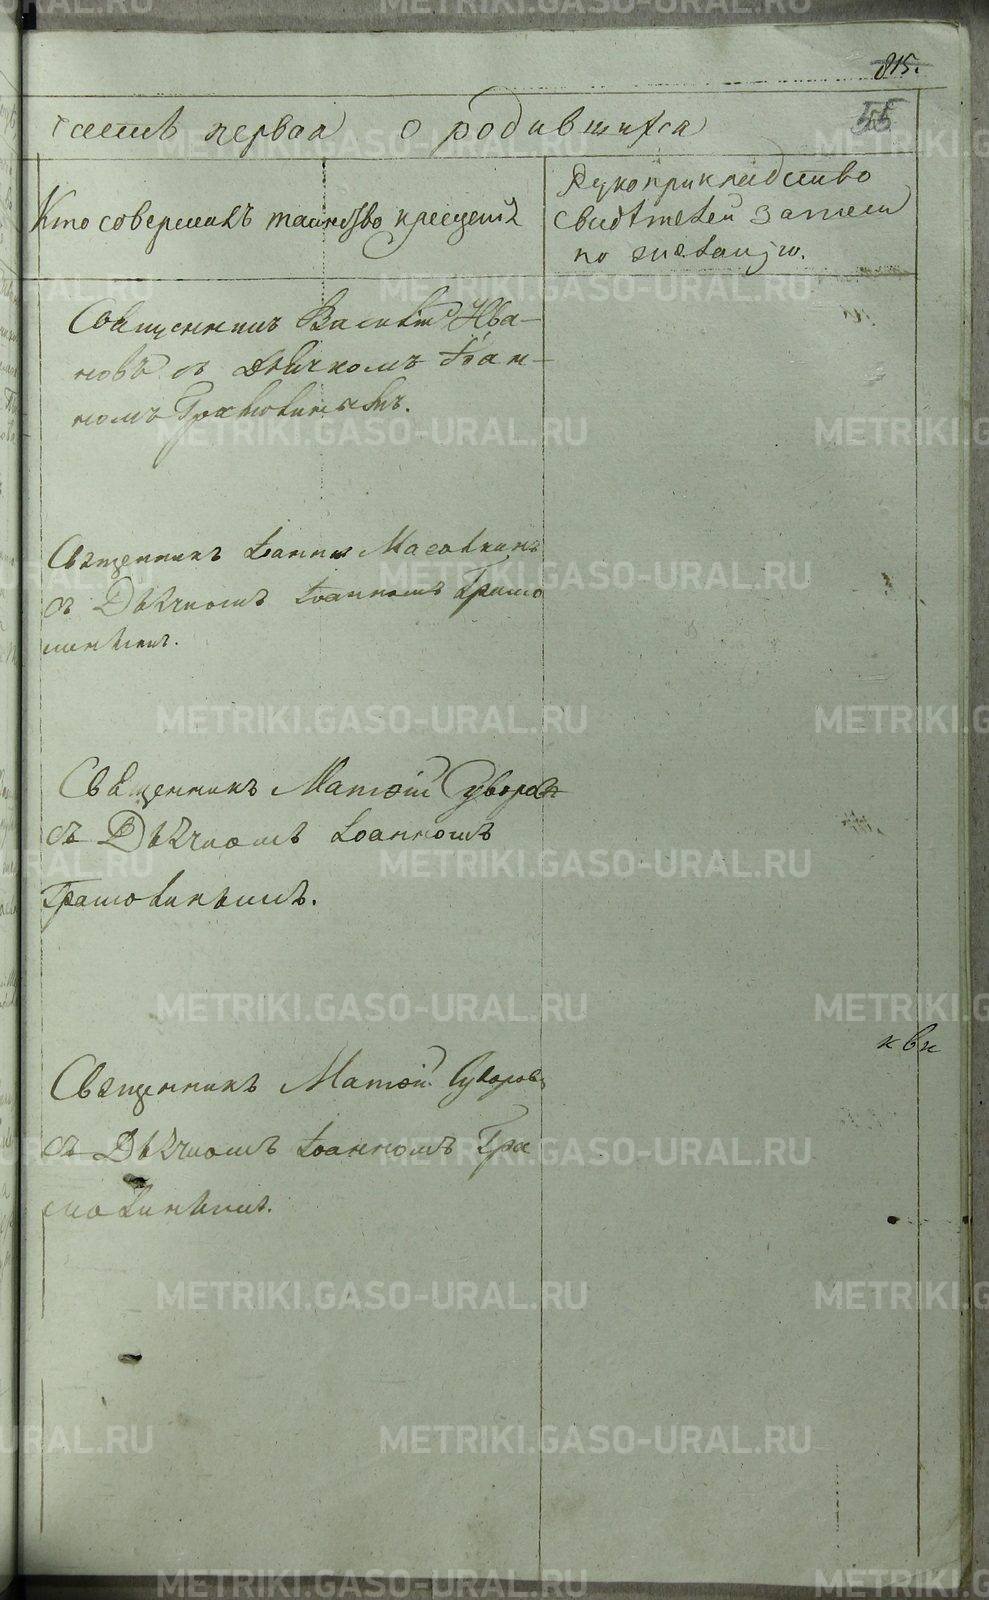 815.
55
часть первая о родившихся
Кто совершилъ таинство крещенiя
Рукоприкладство
свидѣтелей записи
по желанiю.
Священникъ Василiй Ива-
новъ съ Дьячкомъ Iоан-
номъ Грамовинымъ.
Священникъ Iоаннъ
съ Дьячкомъ Iоанномъ Грамо
виннымъ.
Священникъ Матѳiй Суворовъ
съ Дьячкомъ Iоанномъ
Грамовинымъ.
Священникъ Матѳiй Суворовъ
съ Дьячкомъ Iоанномъ Гра
мовинымъ.
METRIKI.GASO-URAL.RU